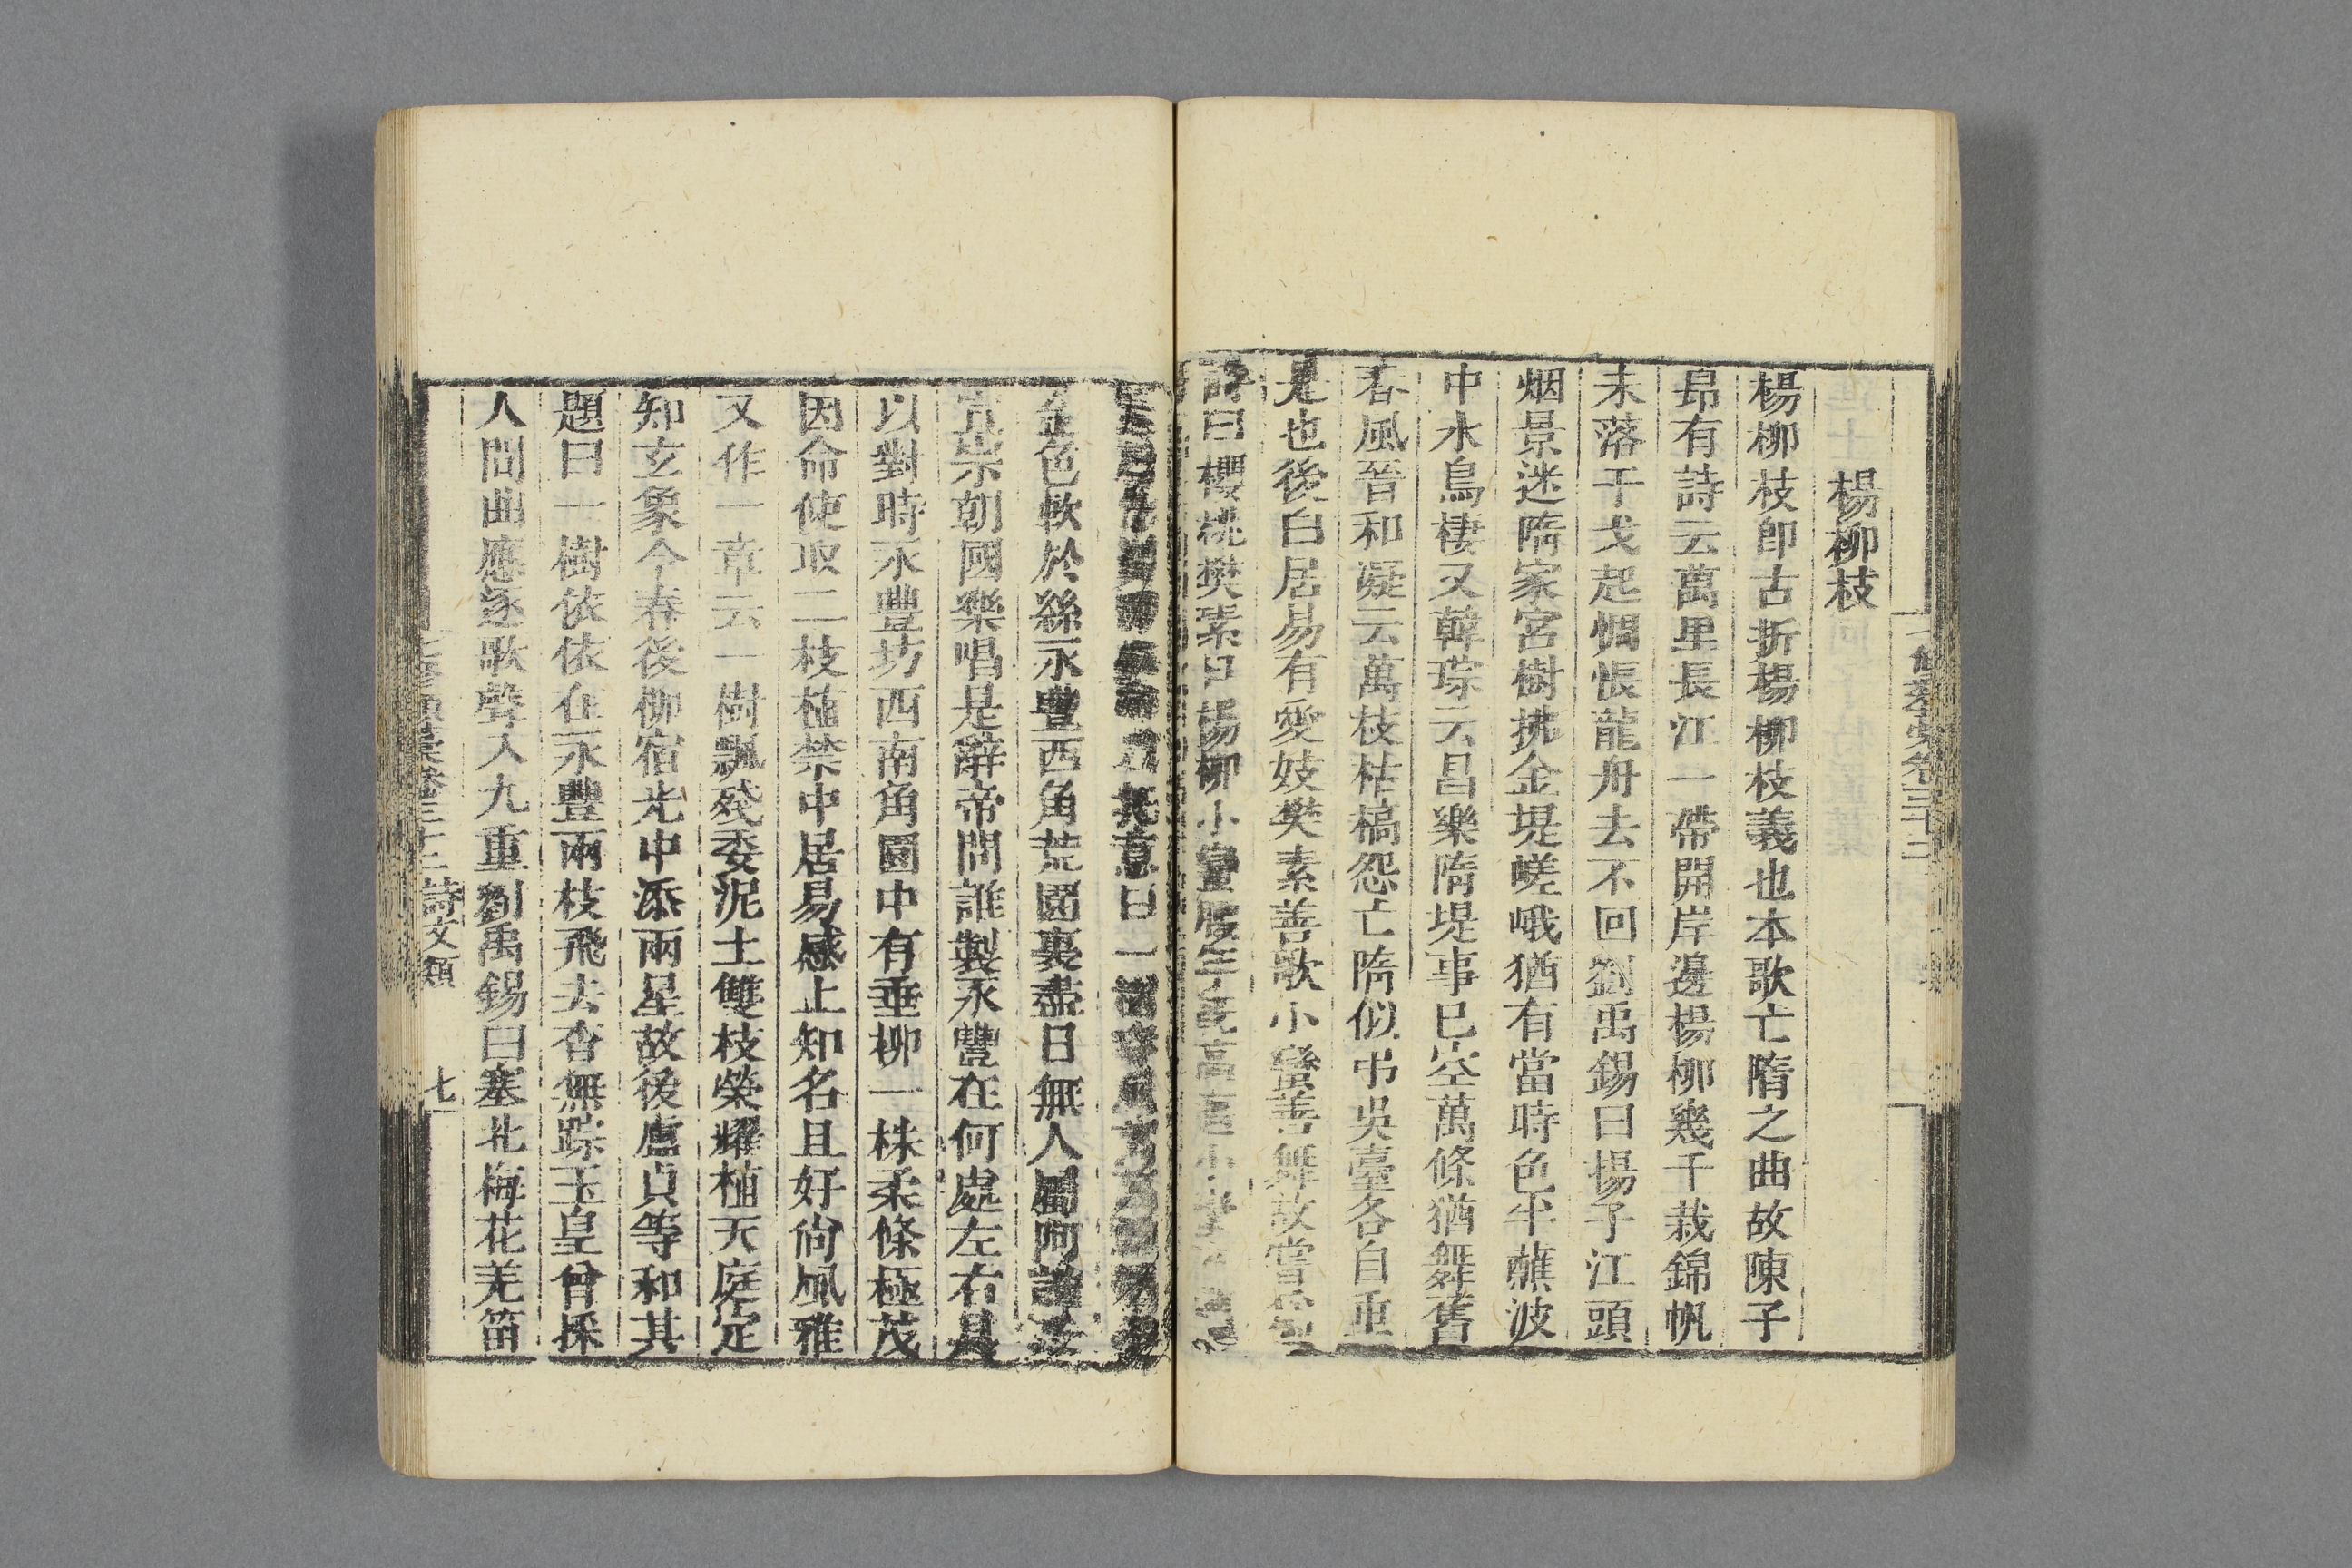 楊柳枝
楊柳枝即古折楊柳枝義也本歌亡隋之曲故陳子
昂有詩云萬里長江一帶開岸邊楊柳幾千栽錦帆
未落干戈起惆悵龍舟去不回劉禹錫曰揚子江頭
烟景迷隋家宮樹拂金堤嵯峨猶有當時色半蘸波
中水鳥棲又韓琮云昌樂隋堤事已空萬條猶舞舊
春風晉和凝云萬枝枯槁怨亡隋似弔吳臺各自垂
是也後白居易有愛妓樊素善歌小蠻善舞故嘗爲
詩曰櫻桃樊素口楊柳小蠻腰年旣高邁小
意曰一
金色軟於絲永豐西角荒園裏盡日無人屬阿誰
宣宗朝國樂唱是辭帝問誰製永豐在何處左右具
以對時永豐坊西南角園中有垂柳一株柔條極茂
因命使取二枝植禁中居易感上知名且好尙風雅
又作一章云一樹飄殘委泥土雙枝榮耀植天庭定
知玄象今春後柳宿光中添兩星故後盧貞等和其
題曰一樹依依在永豐兩枝飛去杳無踪玉皇曾採
人間曲應逐歌聲入九重劉禹錫曰塞北梅花羌笛
詩文類 七